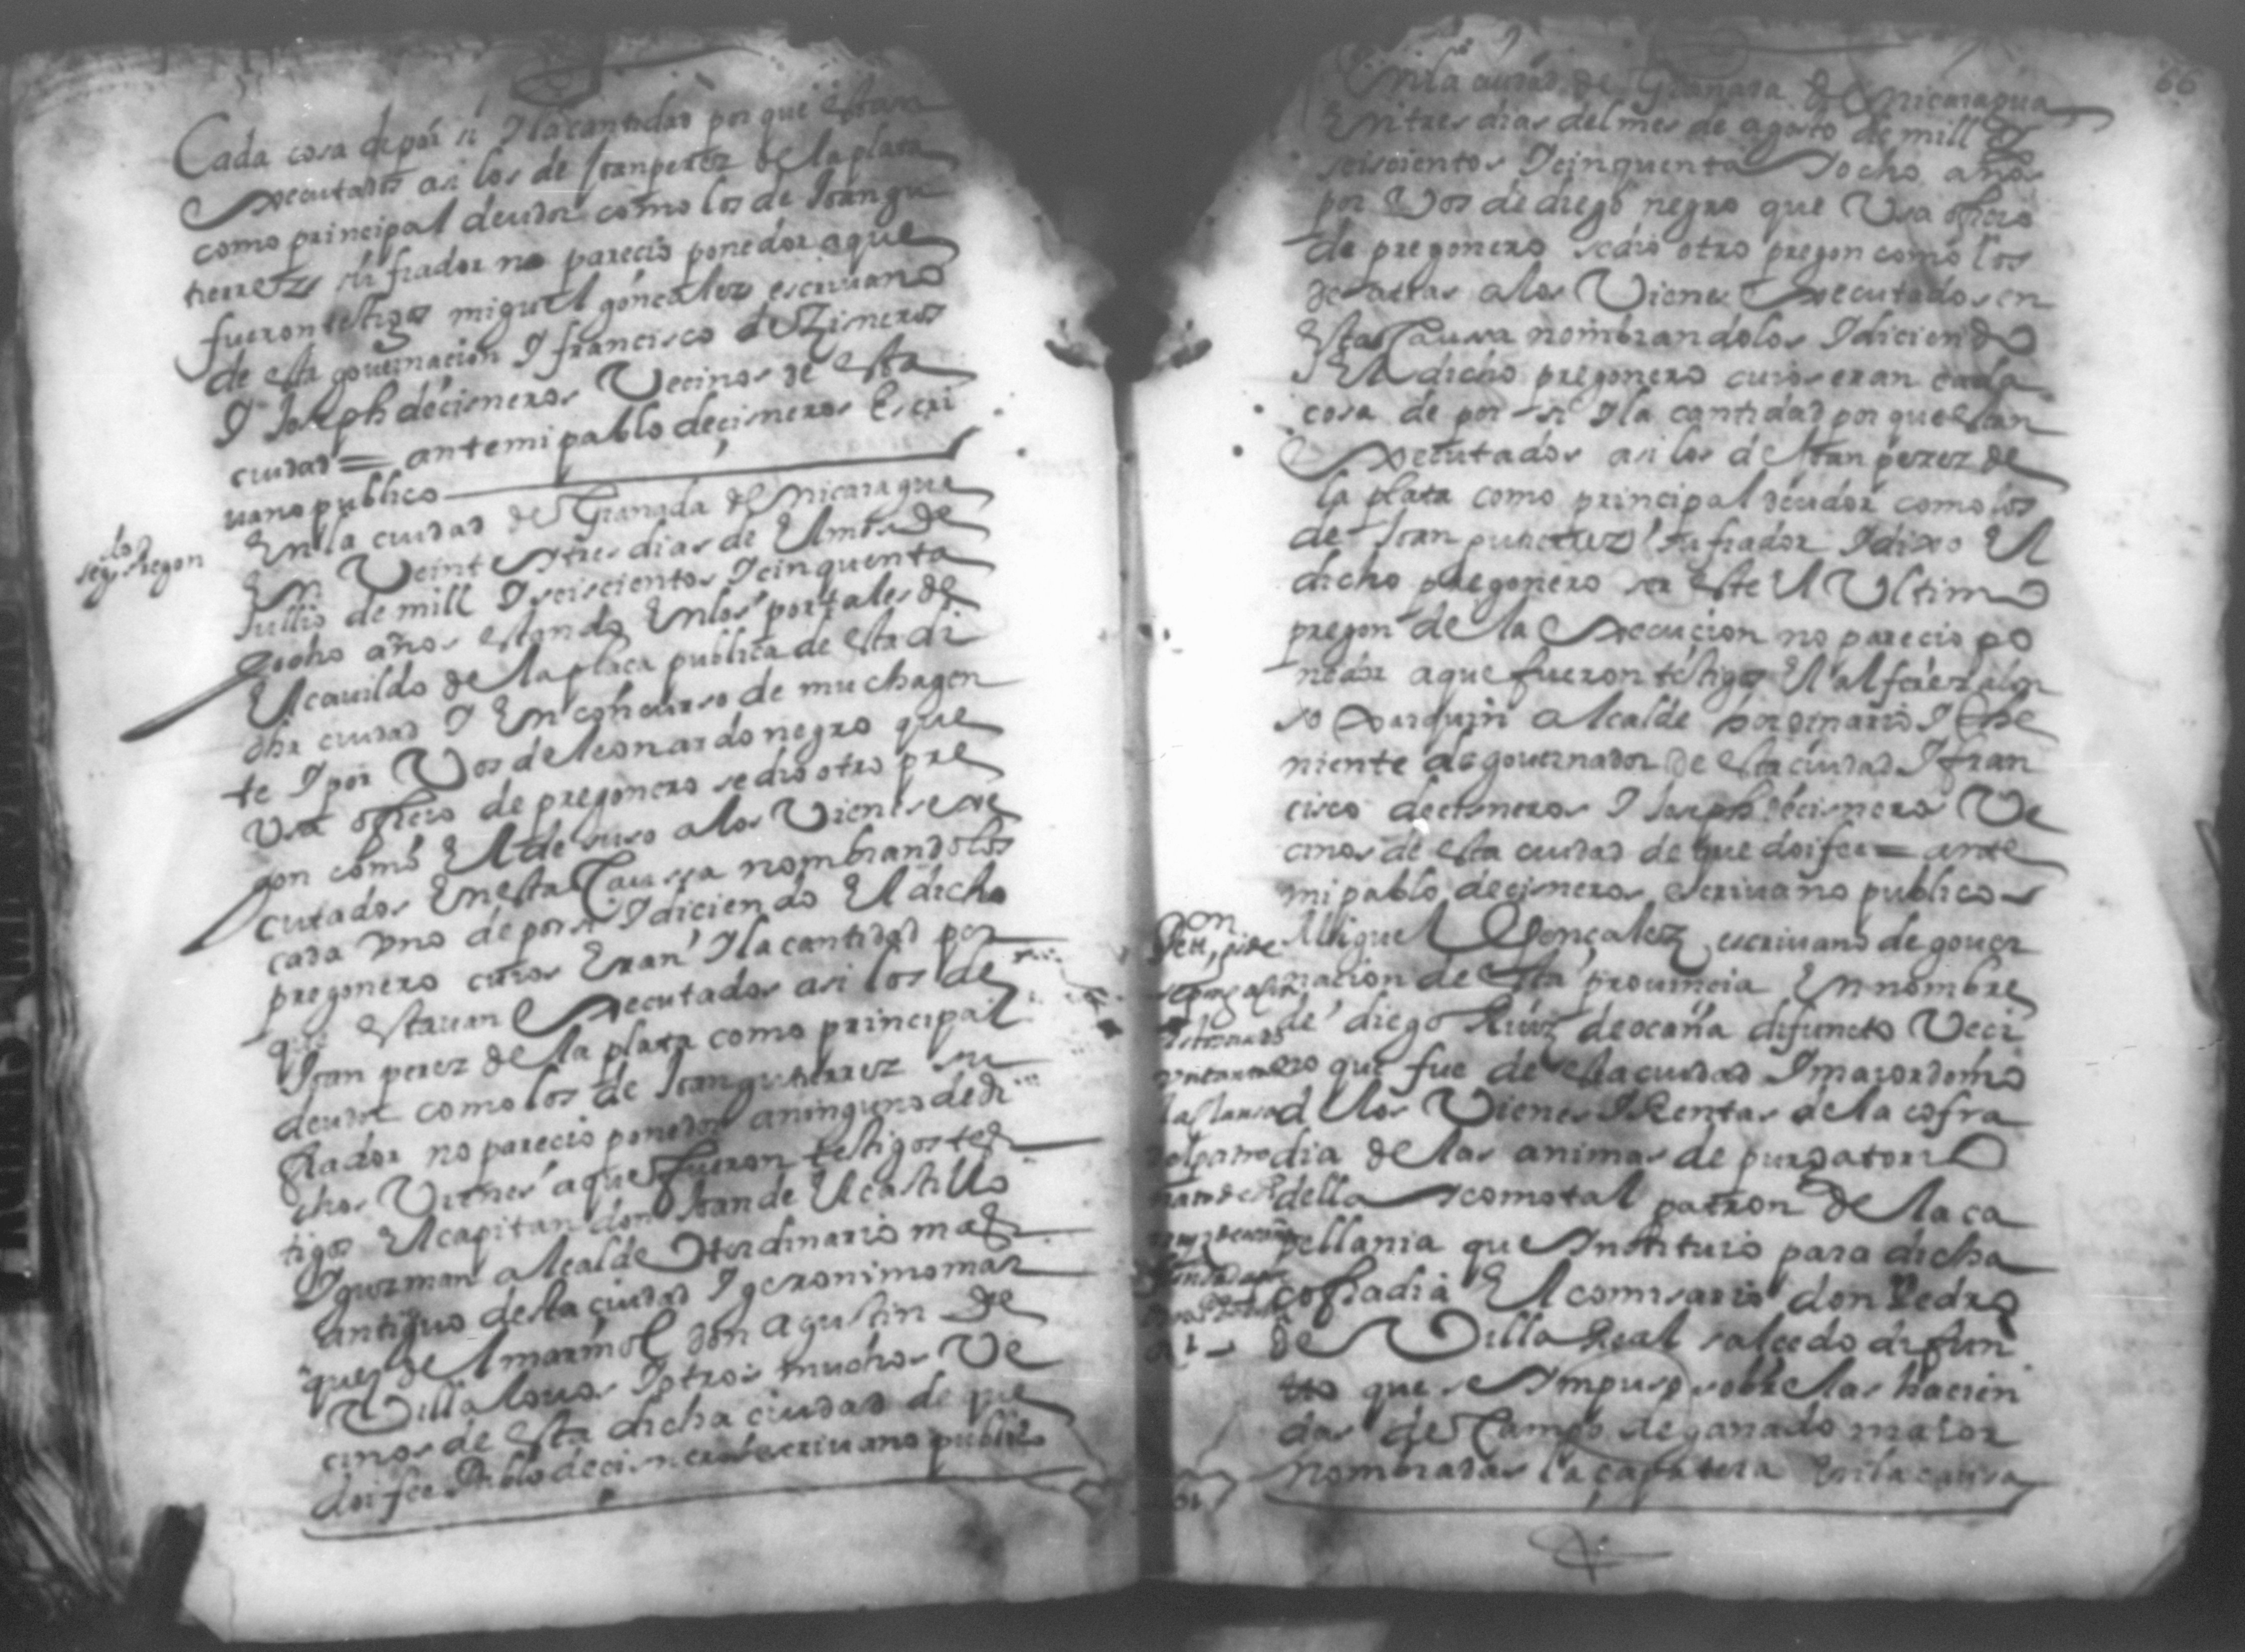 Cada cosa de por si I la cantidad por que estava
Executados asi los de Joan perez de la plata
como principal deudor como los de Joan gu
tierrez su fiador no parecio ponedor a que
fueron testigos miguel gonçalez escriuano
de esta gouernacion I francisco de Zisneros
I Joseph de cisneros Vecinos de esta
ciudad = ante mi pablo de cisneros Escri
uano publico
segdo pregon
En la ciudad de Granada de Nicaragua
En Veint I tres dias de El mes de
Jullio de mill I seiscientos I cinquenta
I ocho años estando En los portales de
El cauildo de la plaça publica de esta di
cha ciudad I En concurso de mucha gen
te I por Vos de leonardo negro que
Vsa oficio de pregonero se dio otro pre
gon como El de suso a los Vienes exe
cutados En esta Caussa nombrandolos
cada Vno de por si I diciendo El dicho
pregonero cuios Eran I la cantidad por
que estauan Executados asi los de
Joan perez de la plata como principal
deudor como los de Joan gutierrez su
fiador no parecio ponedor a ninguno de di
chos Vienes a que fueron testigos tes
tigos El capitan don Joan de El castillo
I guzman alcalde Hordinario mas
antiguo desta ciudad I geronimo mar
quez de El marmol don agustin de
Villa louos I otros muchos Ve
cinos de esta dicha ciudad de que
doi fee Pablo de cisneros escriuano publico
66
En la ciudad de Granada de Nicaragua
En tres dias del mes de agosto de mill I
seiscientos I cinquenta I ocho años
por Vos de diego negro que Vsa oficio
de pregonero se dio otro pregon como los
de atras a los Vienes Executados en
Esta Caussa nombrandolos I diciendo
El dicho pregonero cuios eran cada
cosa de por si I la cantidad por que estan
Executados asi los de Joan perez de
la plata como principal deudor como los
de Joan gutierrez su fiador I dixo El
dicho pregonero ser este El Vltimo
pregon de la Execucion no parecio po
nedor a que fueron testigos El alferez alon
so Xarquin alcalde hordinario I the
niente de gouernador de esta ciudad I fran
cisco de cisneros I Joseph de cisneros Ve
cinos de esta ciudad de que doi fee = ante
mi pablo de cisneros escriuano publico
Peon pide
Miguel Gonçalez escriuano de gouer
nacion de esta prouincia En nombre
de diego Ruiz de ocaña difuncto Veci
no que fue de esta ciudad I maiordomo
de los Vienes I Rentas de la cofra
dia de las animas de purgatorio
della I como tal patron de la ca
pellania que Instituio para dicha
cofradia El comisario don Pedro
de Villa Real salcedo difun
to que se Impuso sobre las hacien
das de Campo de ganado maior
nombradas la çapatera En la causa